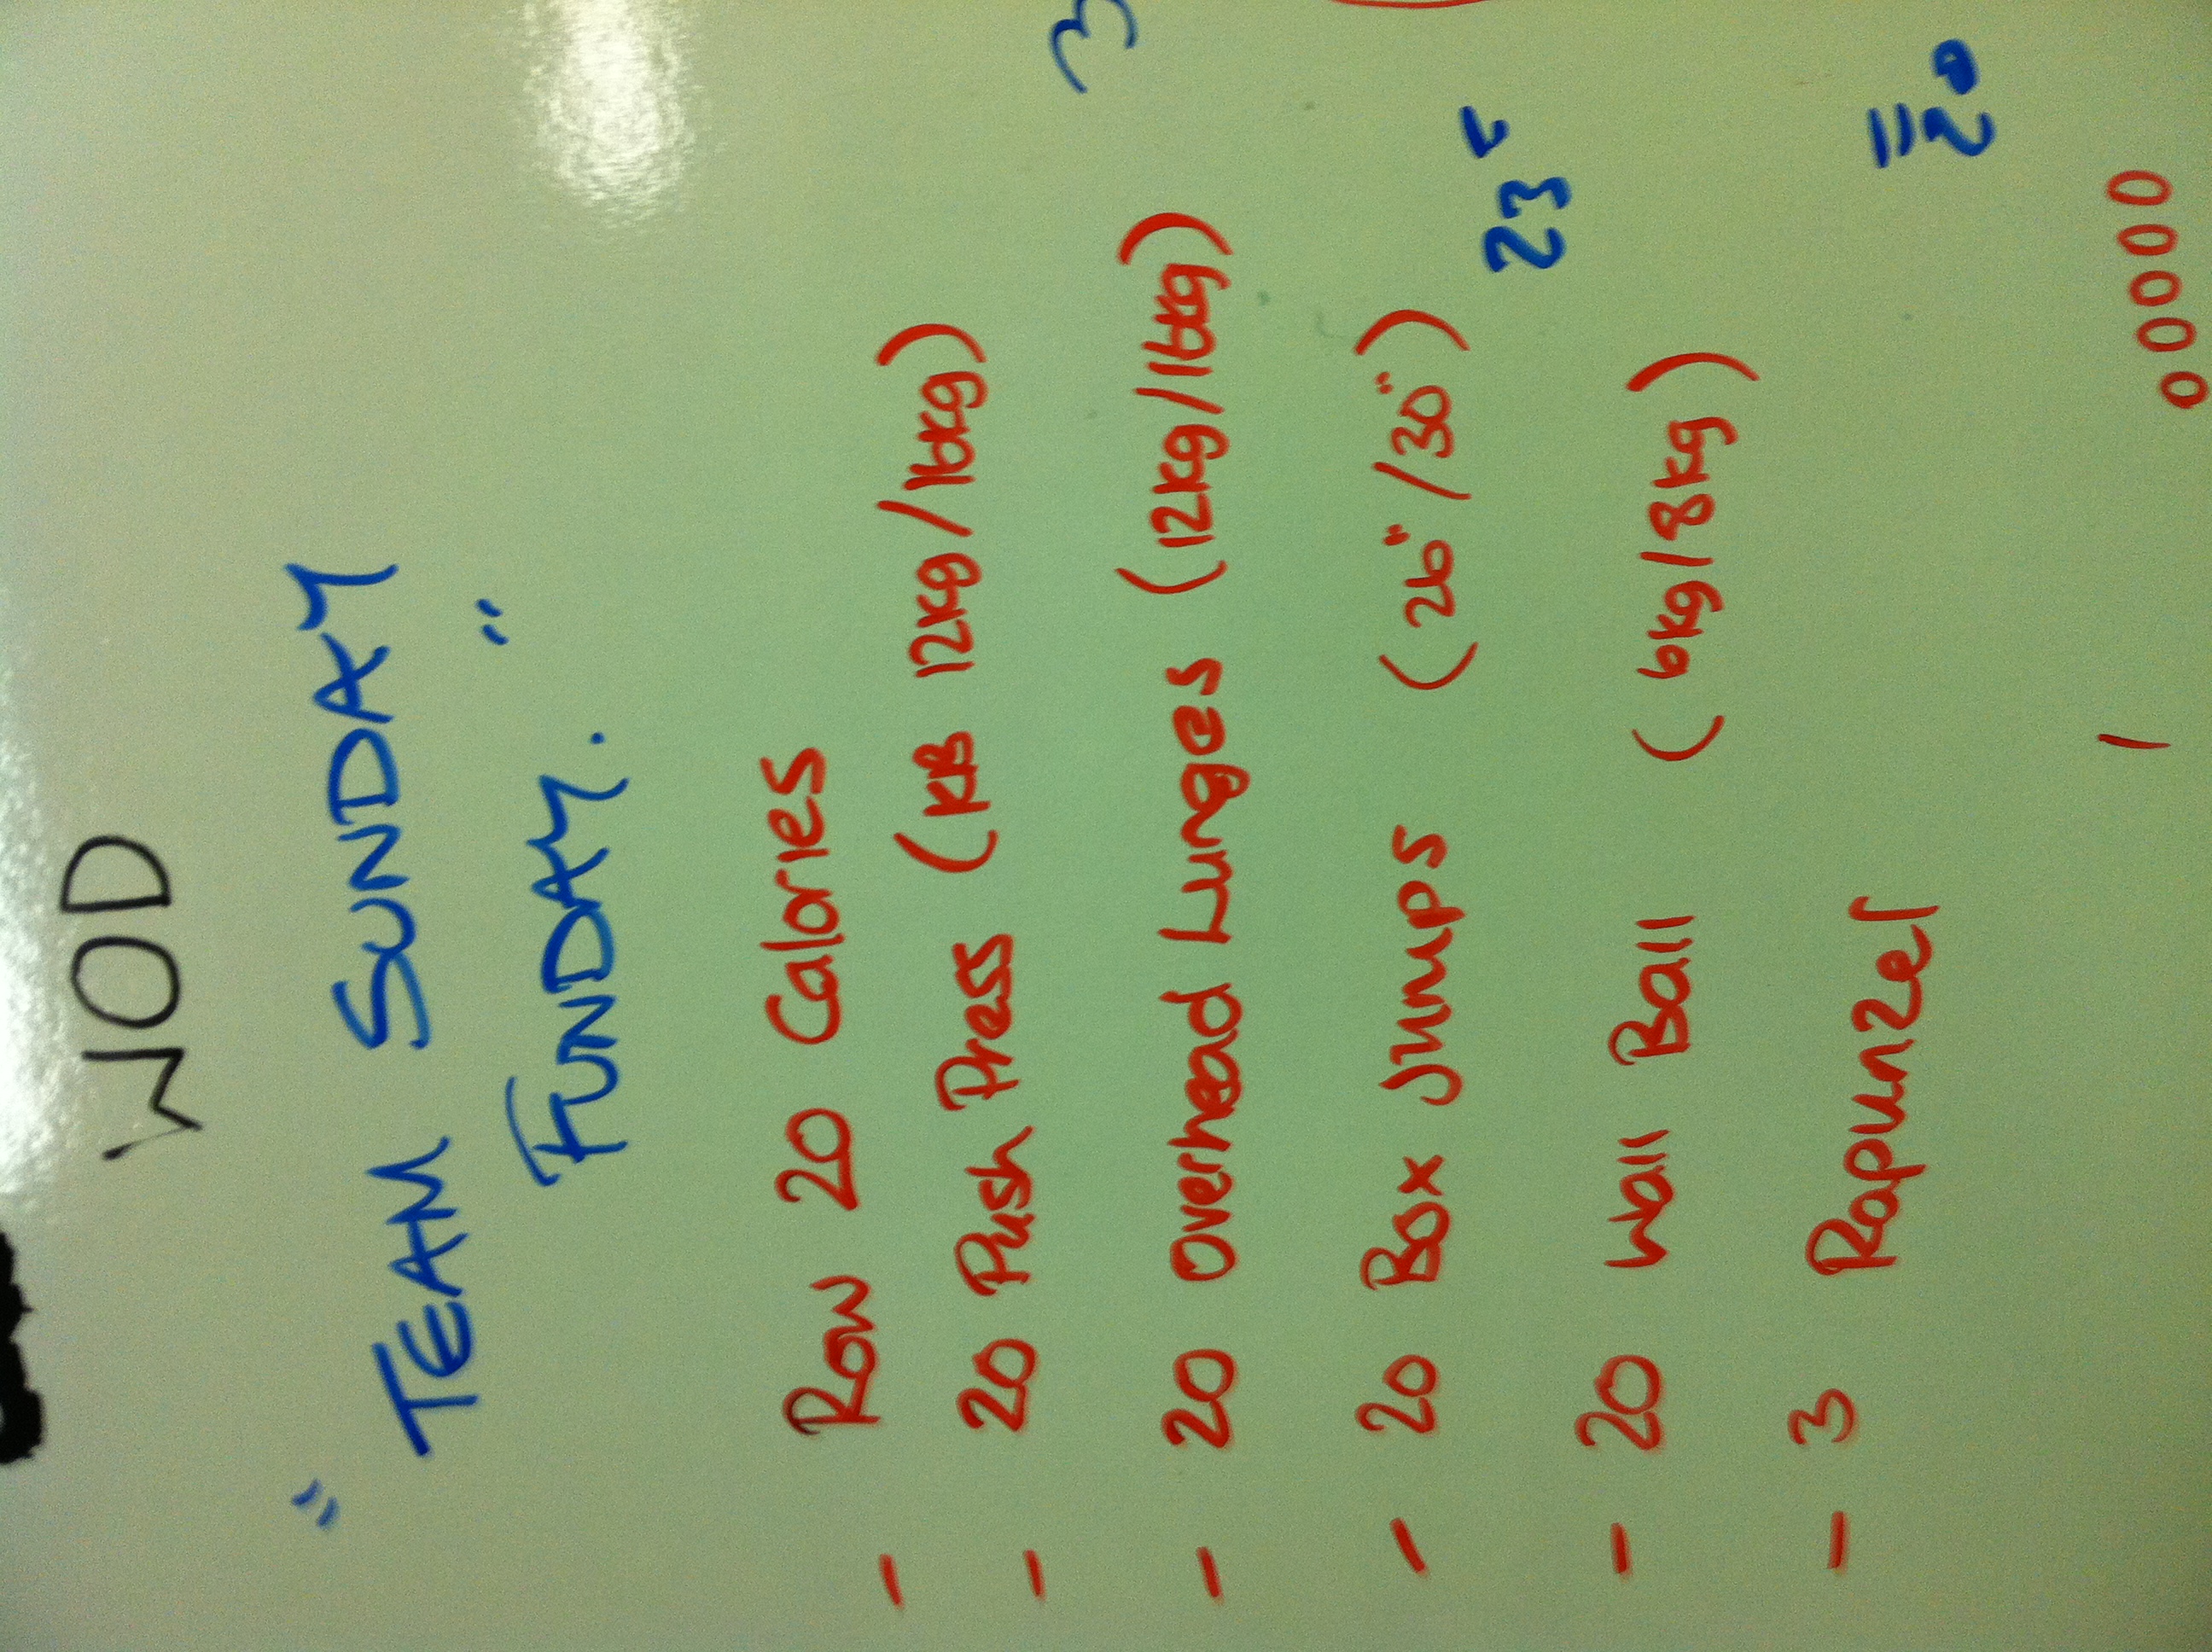 WOD
" TEAM SUNDAY
FUNDAY. "
- Row 20 Calories
- 20 Push Press (KB 12kg/16kg)
3
- 20 Overhead Lunges (12kg/16kg)
- 20 Box Jumps (26"/30")
23
- 20 Wall Ball (6kg/8kg)
- 3 Rapunzel
20